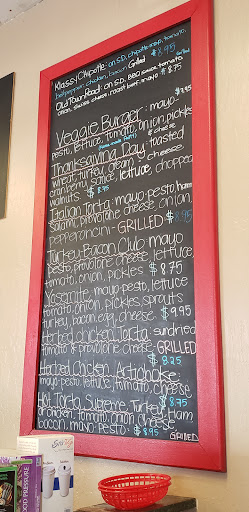 Klassy Chipotle: on S.D. chipotle mayo, tomato,
bell pepper, chicken, bacon Grilled $8.95
Old Town Road: on S.D. BBQ sauce, tomato
onion, swiss cheese, roast beef, mayo $8.75
Veggie Burger: mayo- $7.95
pesto, lettuce, tomato, onion, pickles
& cheese
Thanksgiving Day: toasted
wheat, turkey, cream cheese
cranberry sauce, lettuce, chopped
walnuts $8.95
Italian Torta: mayo-pesto, ham
salami, provolone cheese, onion,
pepperoncini - GRILLED $8.95
Turkey-Bacon Club: mayo
pesto, provolone cheese, lettuce,
tomato, onion, pickles $8.75
Yosemite: mayo-pesto, lettuce
tomato, onion, pickles, sprouts
turkey, bacon, egg, cheese $9.95
Herbed chicken Torta: sundried
tomato & provolone cheese-GRILLED
$8.25
Herbed Chicken Artichoke:
mayo-pesto, lettuce, tomato, cheese
$8.75
Hot Torta Supreme: Turkey, Ham
or chicken, tomato, onion, cheese
bacon, mayo-pesto. $8.95
GRILLED